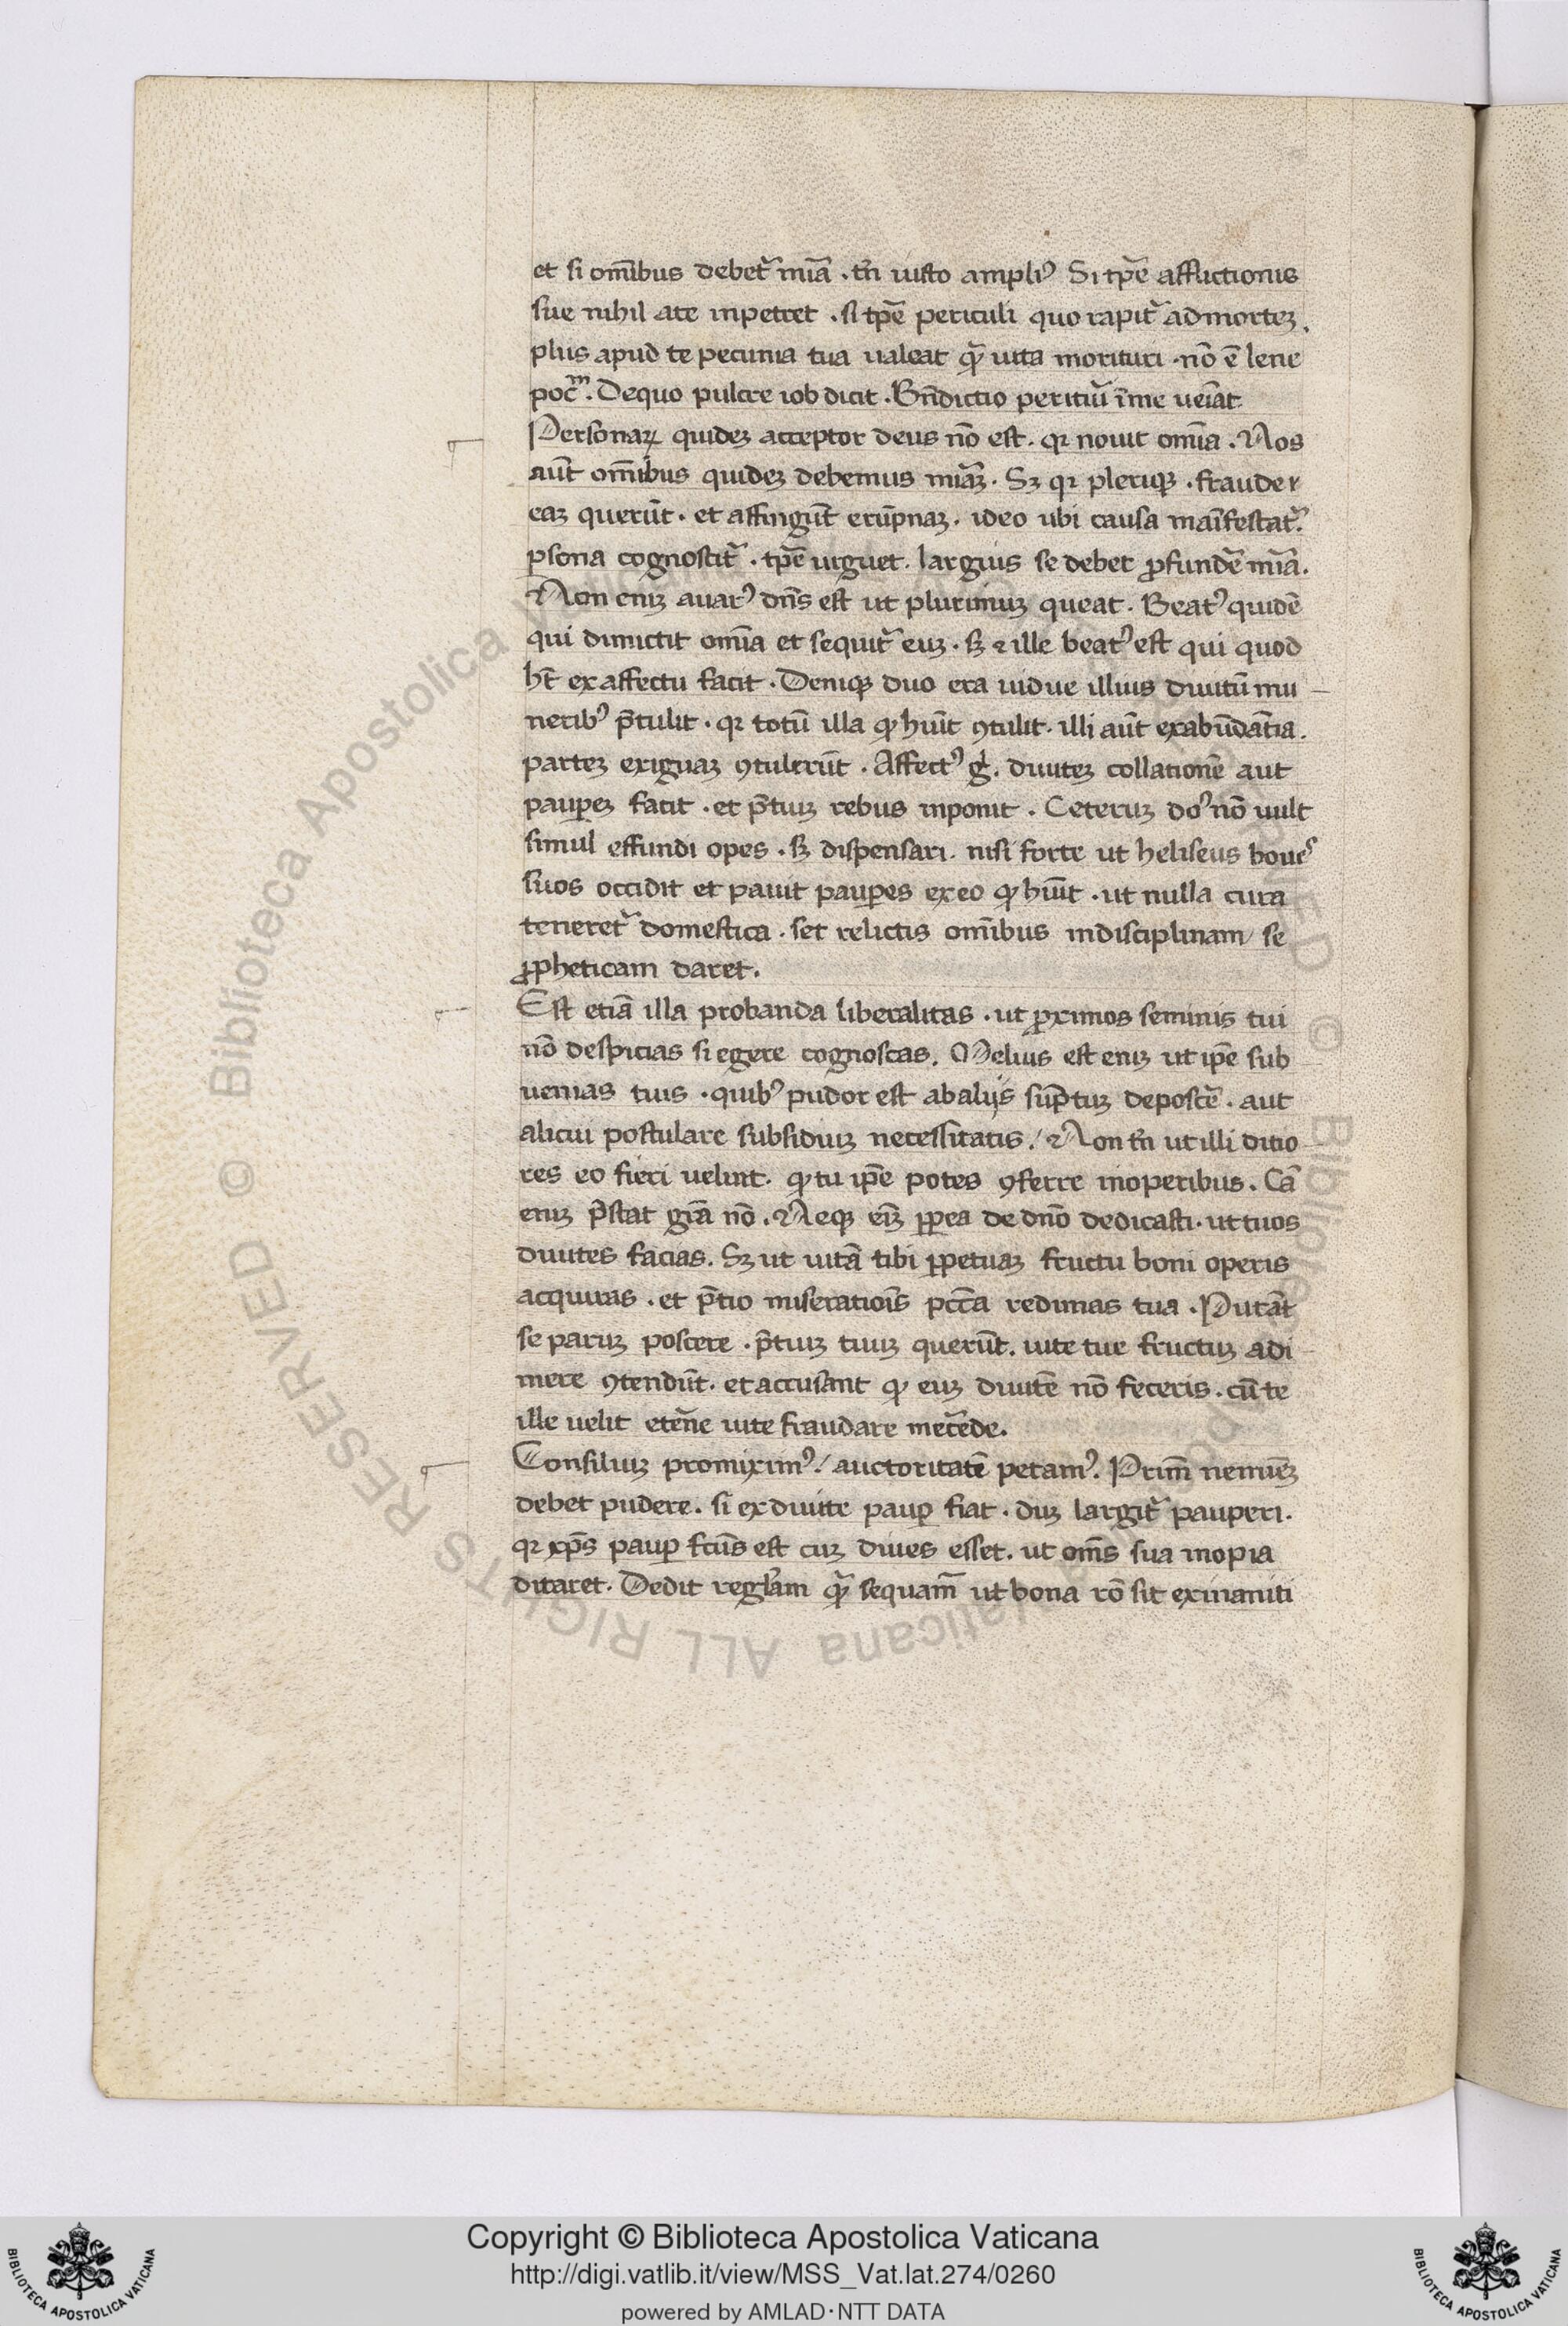 et si om̄ibus debet᷑ mīa . tn̄ iusto ampliꝰ Si tp̄e afflictionis
sue nihil a te inpetret . si tp̄e periculi quo rapit᷑ ad morteꝫ .
plus apud te pecunia tua ualeat qᷓ uita morituri . nō ē leue
pocͫ . De quo pulcre iob dicit . Bn̄dictio perituͥ ī me ueīat
Personaꝝ quideꝫ acceptor deus nō est . qꝛ nouit om̄ia . Nos
aūt om̄ibus quideꝫ debemus mīaꝫ . Sꝫ qꝛ pleriqꝫ . fraude ⁊
eaꝫ querūt . et affingūt erūpnaꝫ . ideo ubi causa maīfestat᷑ .
ꝑsona cognoscit᷑ . tp̄e urguet . largius se debet ꝓfundē mīa .
Non eniꝫ auarꝰ dn̄s est ut plurimuꝫ queat . Beatꝰ quidē
qui dimictit om̄ia et sequit᷑ euꝫ . sꝫ ⁊ ille beatꝰ est qui quod
ht̄ ex affectu facit . Deniqꝫ duo era uidue illius diuitū mu
neribꝰ p̄tulit . qꝛ totū illa ꝙ huīt ꝯtulit . illi aūt ex abūdātia .
parteꝫ exiguaꝫ ꝯtulerūt . Affectꝰ gͥ . diuiteꝫ collationē aut
pauꝑeꝫ facit . et p̄tiuꝫ rebus inponit . Ceteruꝫ doꝰ nō uult
simul effundi opes . sꝫ dispensari . nisi forte ut heliseus boues
suos occidit et pauit pauꝑes ex eo ꝙ huīt . ut nulla cura
teneret᷑ domestica . set relictis om̄ibus in disciplinam se
ꝓpheticam daret .
Est etiā illa probanda liberalitas . ut ꝓximos seminis tui
nō despicias si egere cognoscas . Melius est eniꝫ ut ip̄e sub
uenias tuis . quibꝰ pudor est ab alijs sūptuꝫ deposcē . aut
alicui postulare subsidiuꝫ necessitatis / Non tn̄ ut illi ditio
res eo fieri uelint . ꝙ tu ip̄e potes ꝯferre inoperibus . Cā
eniꝫ p̄stat grā nō . Neqꝫ eīꝫ ꝓpea de dn̄o dedicasti . ut tuos
diuites facias . Sꝫ ut uitā tibi ꝑpetuaꝫ fructu boni operis
acquiras . et p̄tio miseratiōis pcc̄a redimas tua . Putāt
se paruꝫ poscere . p̄tiuꝫ tuuꝫ querūt . uite tue fructuꝫ adi
mere ꝯtendūt . et accusant ꝙ euꝫ diuitē nō feceris . cū te
ille uelit etēne uite fraudare mēcede .
Consiliuꝫ promiximꝰ / auctoritatē petamꝰ . Prim̄ nemīeꝫ
debet pudere . si ex diuite pauꝑ fiat . duꝫ largit᷑ pauperi .
qꝛ xp̄s pauꝑ fcūs est cuꝫ diues esset . ut om̄s sua inopia
ditaret . Dedit regl̄am qᷓ sequam̄ ut bona rō sit exinaniti
Copyright © Biblioteca Apostolica Vaticana
http://digi.vatlib.it/view/MSS_Vat.lat.274/0260
powered by AMLAD·NTT DATA